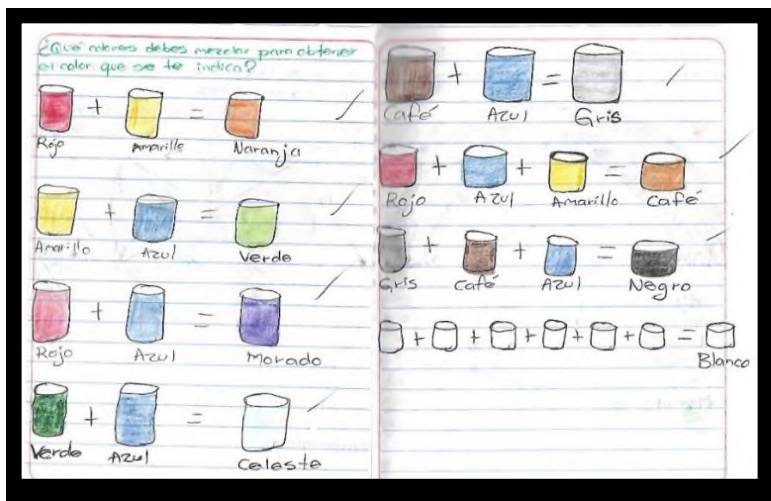 ¿Qué colores debes mezclar para obtener
el color que se te indica?
+ =
Rojo Amarillo Naranja
+ =
Amarillo Azul Verde
+ =
Rojo Azul Morado
+ =
Verde Azul Celeste
+ =
Café Azul Gris
+ + =
Rojo Azul Amarillo Café
+ + =
Gris Café Azul Negro
+ + + + + =
Blanco